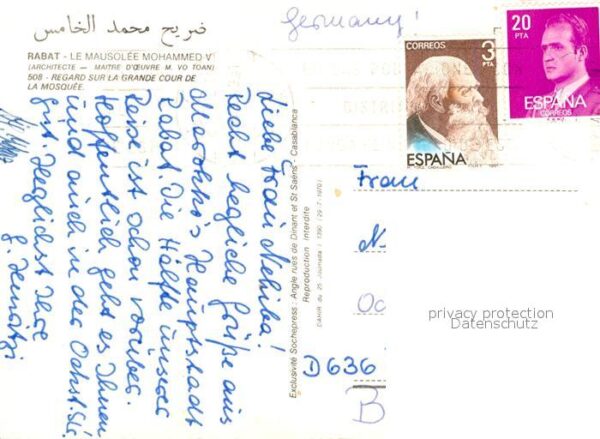 ضريح محمد الخامس
RABAT - LE MAUSOLÉE MOHAMMED V
(ARCHITECTE — MAITRE D'ŒUVRE M. VO TOAN)
508 - REGARD SUR LA GRANDE COUR DE
LA MOSQUÉE.
Germany!
CORREOS
3
PTA
ESPAÑA
20
PTA
ESPAÑA
CORREOS
Liebe Frau
Recht herzliche Grüße aus
Marokko's Hauptstadt
Rabat. Die Hälfte unserer
Reise ist schon vorüber.
Hoffentlich geht es Ihnen
und auch in der
gut. Herzlichst Ihre
Exclusivité Sochepress : Angle rues de Dinant et St Saëns - Casablanca
Reproduction interdite
Frau
N
Oc
D 636
B
privacy protection
Datenschutz